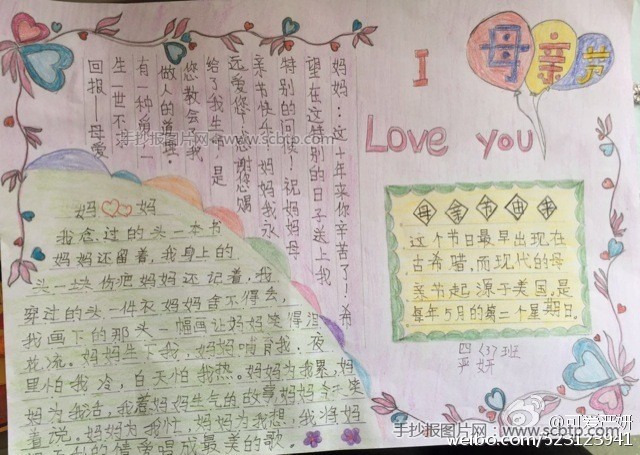 I
母亲节
Love you
妈妈：这十年来你辛苦了！希
望在这特别的日子送上我
特别的问候！祝妈妈母
亲节快乐，妈妈我永
远爱您，感谢您赐
给了我生命，是
您教会了我
做人的道理
有一种 一
生一世不
回报——母爱
手抄报图片网 www.scbtp.com
母亲节由来
这个节日最早出现在
古希腊，而现代的母
亲节起源于美国，是
每年5月的第二个星期日。
四(3)班
严妍
妈 妈
我念过的头一本书
妈妈还留着，我身上的
头一块伤疤妈妈还记着，我
穿过的头一件衣妈妈舍不得丢，
我画下的那头一幅画让妈妈笑得泪
花流。妈妈生下我，妈妈哺育我，夜
里怕我冷，白天怕我热。妈妈为我累，妈
妈为我活，我惹妈妈生气的故事妈妈
着说。妈妈为我忙，妈妈为我想，我将妈
唱成最美的歌
手抄报图片网 www.scbtp.com
@可爱严妍
weibo.com/523123941